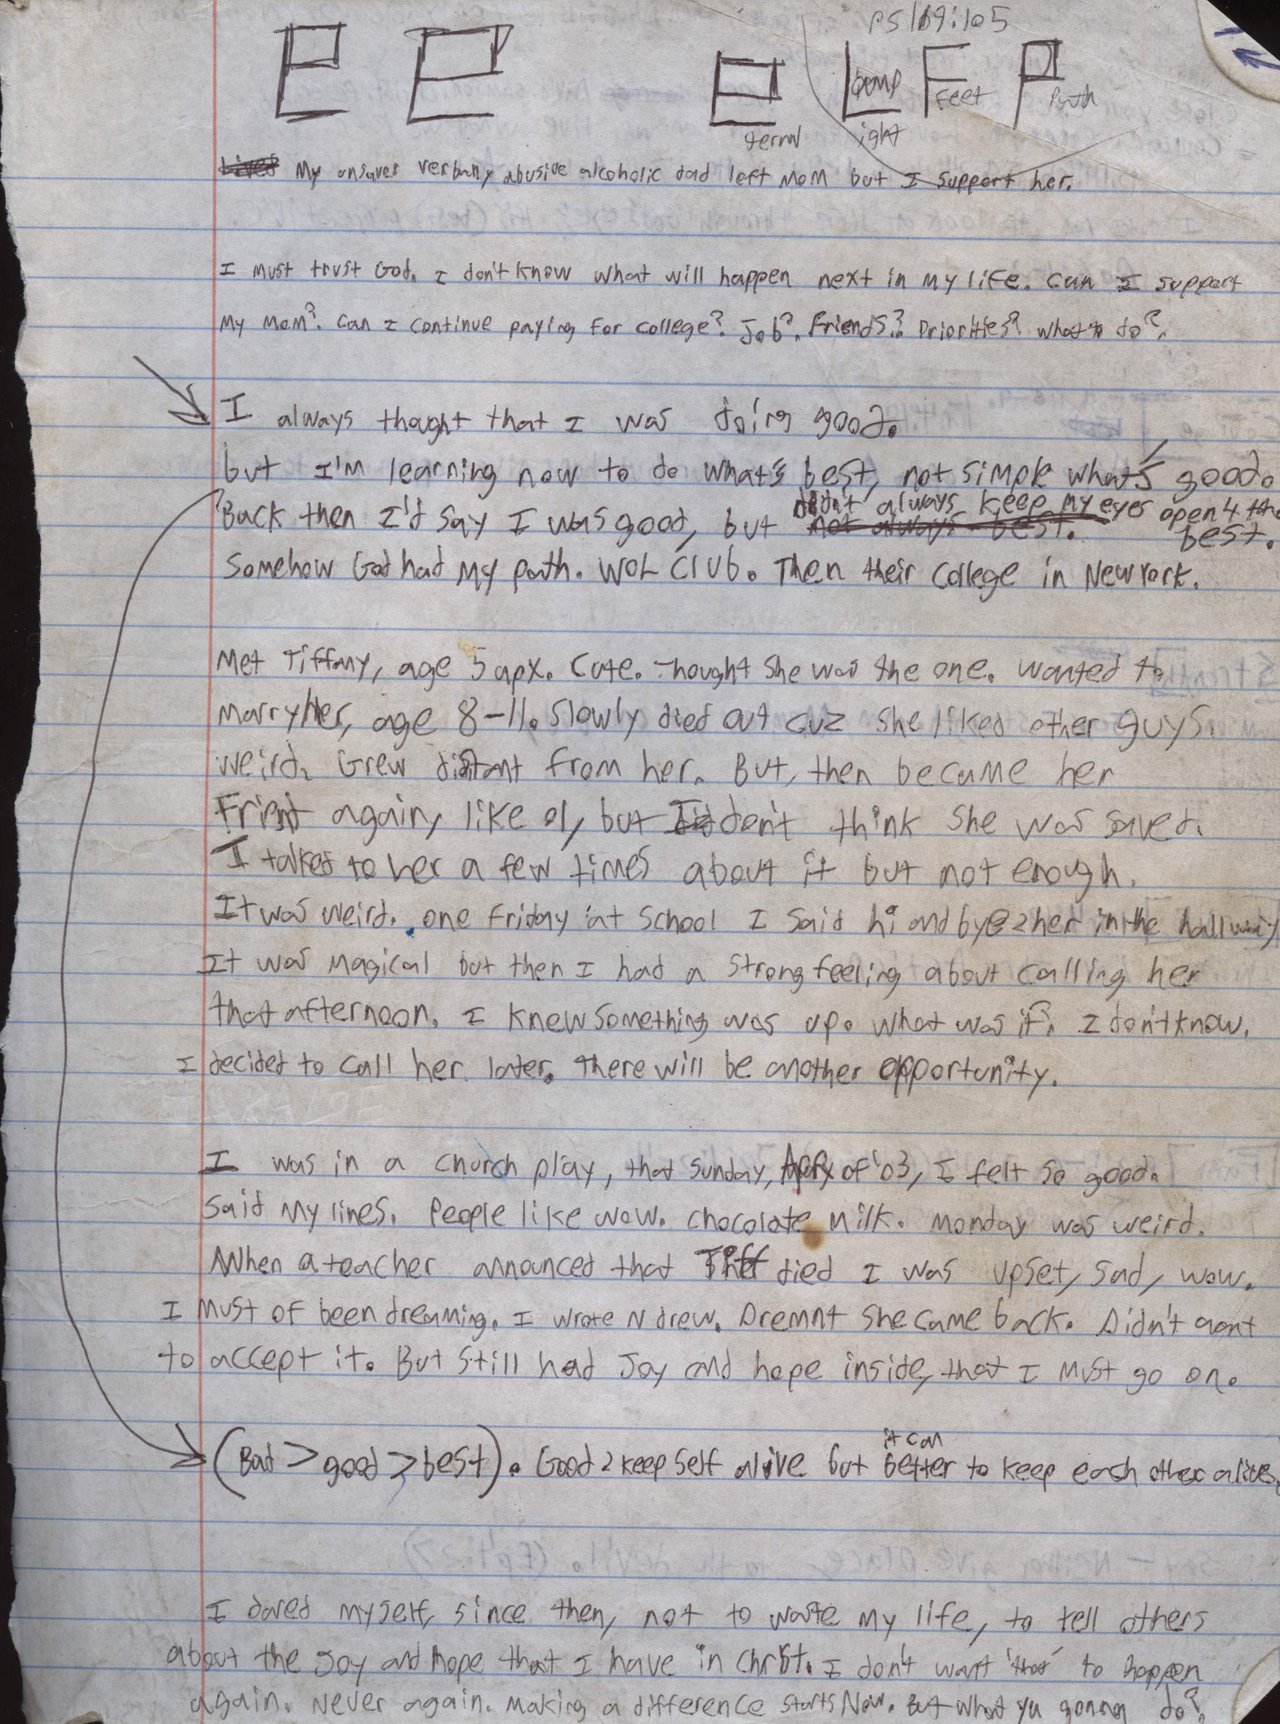 PS 119:105
E P E L F P
Lamp Feet Path
ternal ight
Lived My unsaved verbally abusive alcoholic dad left mom but I support her.
I must trust God. I don't know what will happen next in my life. Can I support
my mom? Can I continue paying for college? Job? Friends? Priorities? What to do?
I always thought that I was doing good.
but I'm learning now to do what's best, not simple what's good.
Back then I'd say I was good, but not always best. didn't always keep my eyes open 4 the best.
Somehow God had my path. WOL Club. Then their College in New York.
Met Tiffany, age 5 apx. Cute. Thought she was the one. Wanted to
marry her, age 8-11. Slowly died out cuz she liked other guys.
Weird. Grew distant from her. But, then became her
Friend again, like ol, but I don't think she was saved.
I talked to her a few times about it but not enough.
It was weird. one Friday at school I said hi and bye 2 her in the hallway
It was magical but then I had a strong feeling about calling her
that afternoon. I knew something was up. What was it? I don't know.
I decided to call her later. There will be another opportunity.
I was in a church play, that Sunday, of '03, I felt so good.
Said my lines. People like wow. Chocolate milk. Monday was weird.
When a teacher announced that Tiff died I was upset, sad, wow.
I must of been dreaming. I wrote N drew. Dremnt she came back. Didn't want
to accept it. But still had Joy and hope inside, that I must go on.
(Bad > good > best). Good 2 keep self alive but it can better to keep each other alive.
I dared myself, since then, not to waste my life, to tell others
about the Joy and hope that I have in Christ. I don't want 'that' to happen
again. Never again. Making a difference starts Now. But what ya gonna do?